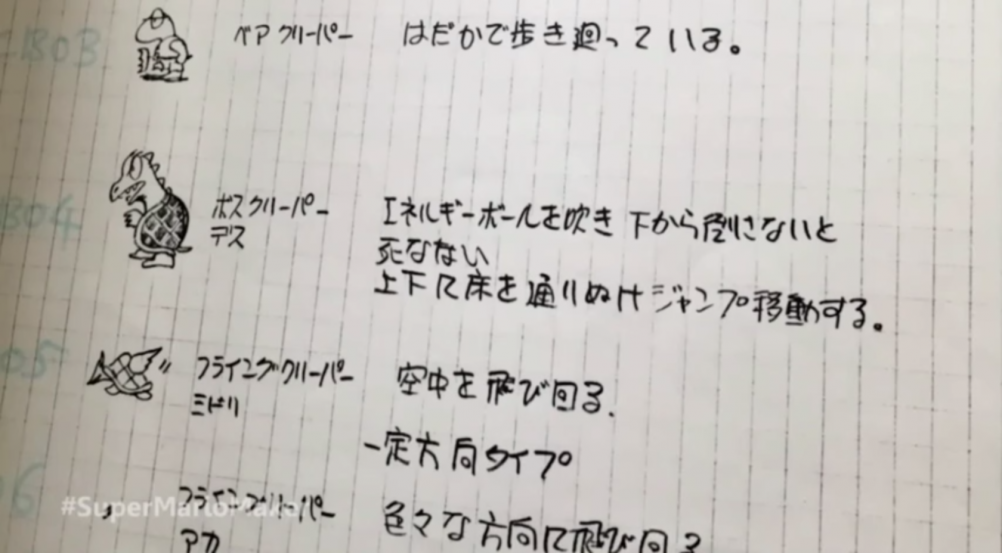 1303
ベアクリーパー　はだかで歩き廻っている。
1304
ボスクリーパー　エネルギーボールを吹き 下から倒さないと
デス　死なない
上下に床を通りぬけジャンプ移動する。
05
フライングクリーパー　空中を飛び回る.
ミドリ
一定方向タイプ
06
#SuperMarioMaker
フライングクリーパー　色々な方向に飛び回る
アカ